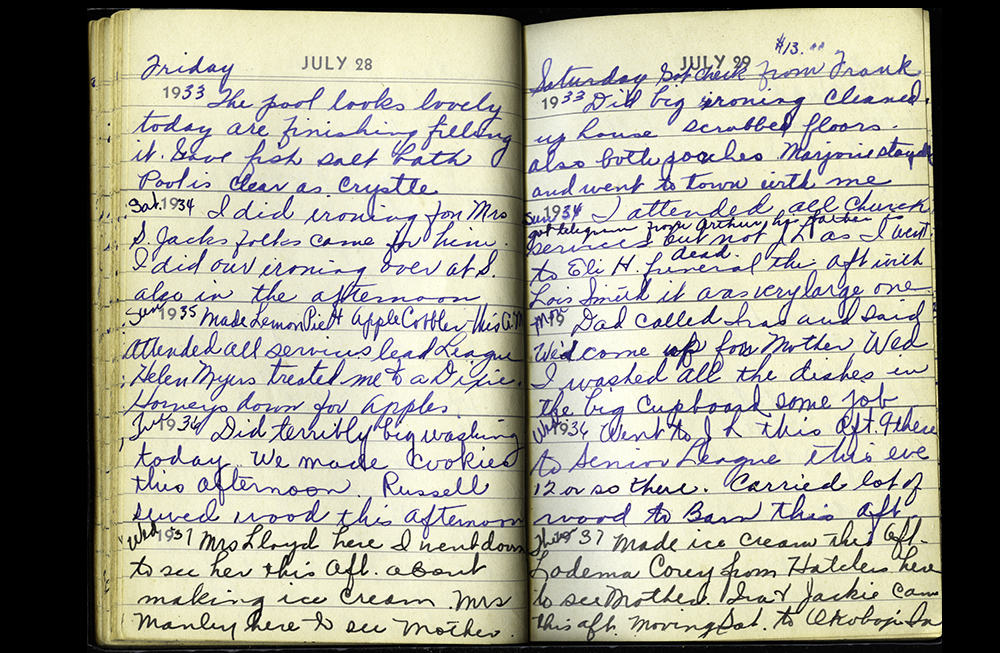 JULY 28
Friday
1933 The pool looks lovely
today are finishing filling
it. Gave fish salt bath
Pool is clear as crystle
Sat. 1934 I did ironing for Mrs
S. Jacks folks came for him.
I did our ironing over at S.
also in the afternoon
Sun 1935 Made Lemon Pie & Apple Cobbler this A.M
Attended all services lead League
Helen Myers treated me to a Dixie.
Homeys down for apples
1936 Did terribly big washing
today. We made cookies
this afternoon. Russell
sawed wood this afternoon
Wed 1937 Mrs Lloyd here I went down
to see her this Aft. about
making ice cream. Mrs
Manley here to see Mother.
$13.00
JULY 29
Saturday Got check from Frank
1933 Did big ironing cleaned
up house scrubbed floors.
also both porches. Marjorie stayed
and went to town with me
Sun 1934 I attended all Church
got telegram from Arthur his father is
services but not as I went
dead.
to Eli H. funeral the aft with
Lois Smith it was very large one.
Mon 19 Dad called Iras and said
We'd come up for Mother Wed
I washed all the dishes in
the big cupboard some job
Wed 1936 Went to this Aft. & there
to Senior League this eve
12 or so there. Carried lot of
wood to Barn this aft.
Thur 1937 Made ice cream this Aft.
Lodema Corey from Hatches here
to see Mother. Ira & Jackie came
this aft. moving Sat. to Okoboji Ia